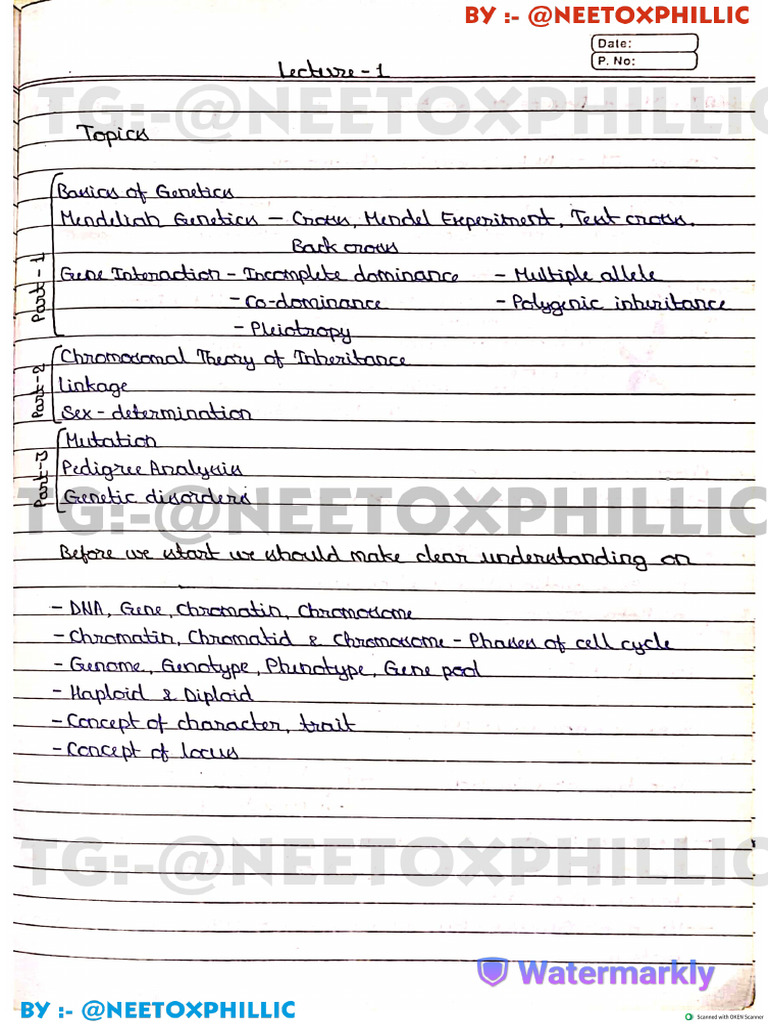 BY :- @NEETOXPHILLIC
Date:
P. No:
Lecture - 1
TG:-@NEETOXPHILLIC
Topics
Part - 1
Basics of Genetics
Mendelian Genetics - Cross, Mendel Experiment, Test cross,
Back cross
Gene Interaction - Incomplete dominance - Multiple allele
- Co-dominance - Polygenic inheritance
- Pleiotropy
Part-2
Chromosomal Theory of Inheritance
Linkage
Sex - determination
Part-3
Mutation
Pedigree Analysis
Genetic disorders
TG:-@NEETOXPHILLIC
Before we start we should make clear understanding on
- DNA, Gene, Chromatin, Chromosome
- Chromatin, Chromatid & Chromosome - Phases of cell cycle
- Genome, Genotype, Phenotype, Gene pool
- Haploid & Diploid
- Concept of character, trait
- Concept of locus
TG:-@NEETOXPHILLIC
Watermarkly
BY :- @NEETOXPHILLIC
Scanned with OKEN Scanner